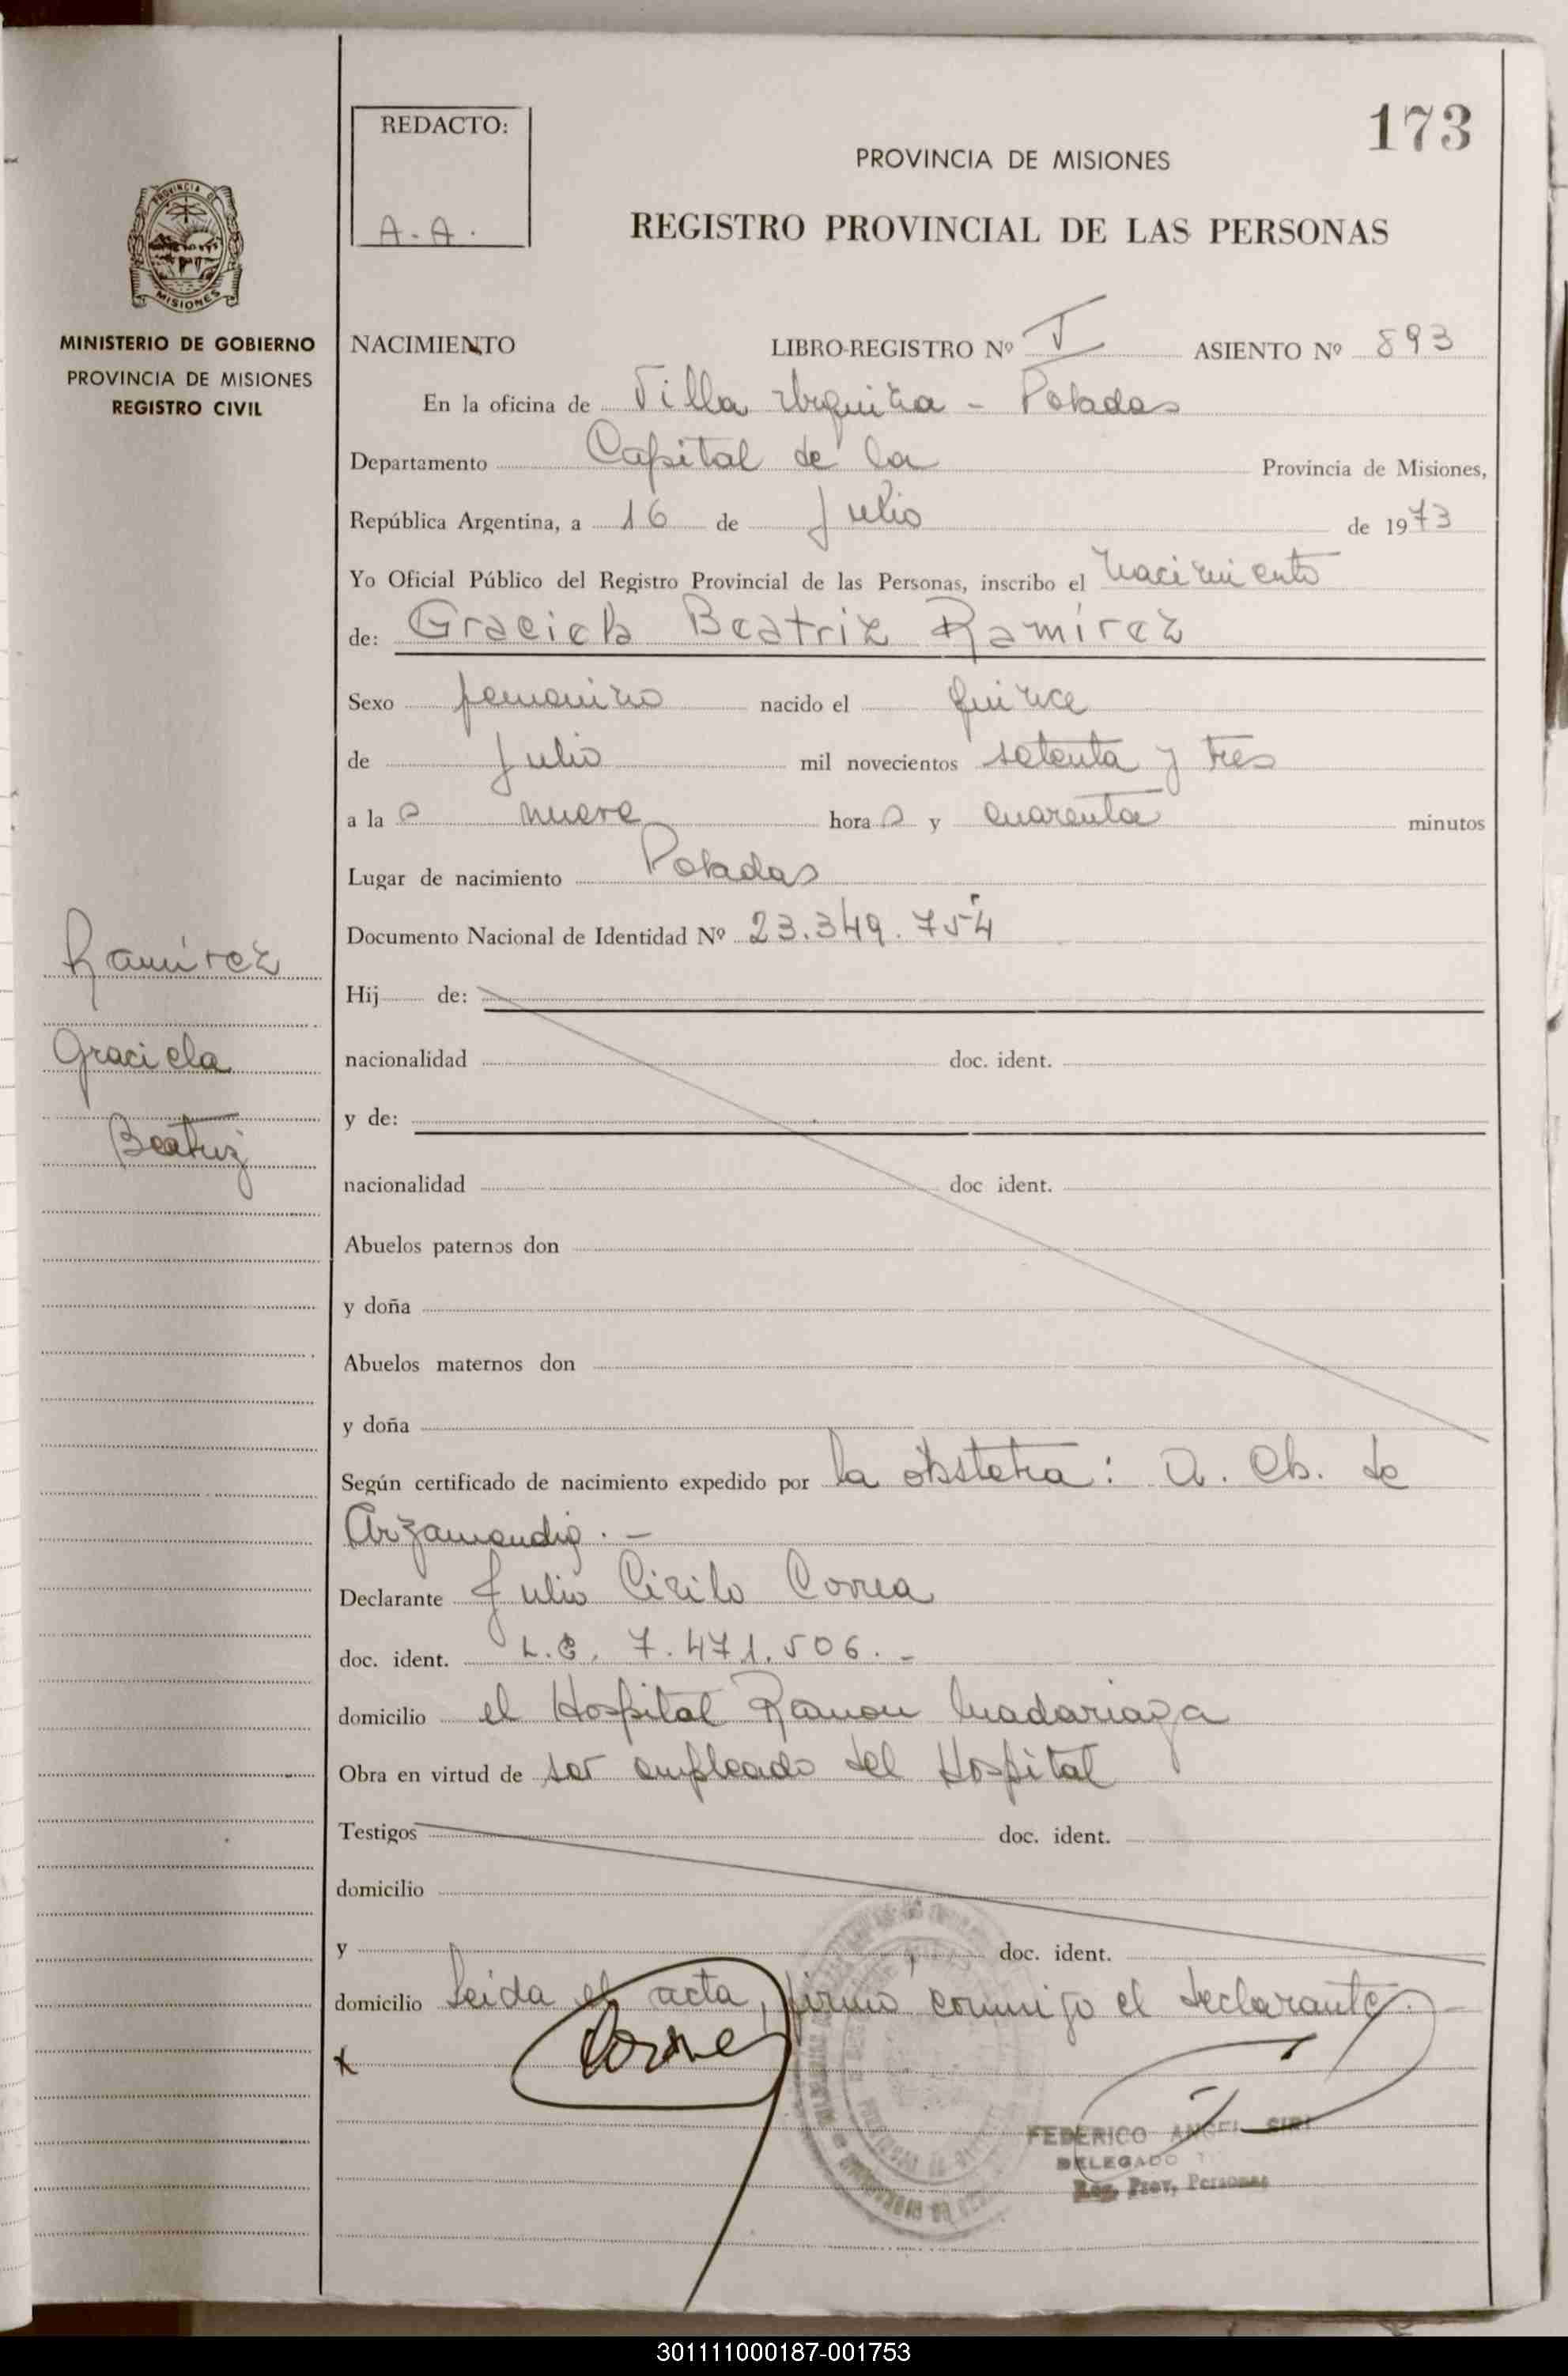 173
REDACTO:
A. A.
PROVINCIA DE MISIONES
REGISTRO PROVINCIAL DE LAS PERSONAS
PROVINCIA DE
MISIONES
MINISTERIO DE GOBIERNO
PROVINCIA DE MISIONES
REGISTRO CIVIL
NACIMIENTO LIBRO-REGISTRO Nº I ASIENTO Nº 893
En la oficina de Villa Urquiza - Posadas
Departamento Capital de la Provincia de Misiones,
República Argentina, a 16 de Julio de 1973
Yo Oficial Público del Registro Provincial de las Personas, inscribo el Nacimiento
de: Graciela Beatriz Ramírez
Sexo femenino nacido el quince
de Julio mil novecientos setenta y tres
a las nueve horas y cuarenta minutos
Lugar de nacimiento Posadas
Documento Nacional de Identidad Nº 23.349.754
Ramírez
Graciela
Beatriz
Hij de:
nacionalidad doc. ident.
y de:
nacionalidad doc ident.
Abuelos paternos don
y doña
Abuelos maternos don
y doña
Según certificado de nacimiento expedido por la obstetra: A. Ch. de
Arzamendia. -
Declarante Julio Cirilo Correa
doc. ident. L.E. 7.471.506. -
domicilio el Hospital Ramon Madariaga
Obra en virtud de ser empleado del Hospital
Testigos doc. ident.
domicilio
y doc. ident.
domicilio Leida el acta, firma conmigo el declarante. -
x
FEDERICO ANGEL SIRI
DELEGADO
Reg. Prov. Personas
301111000187-001753